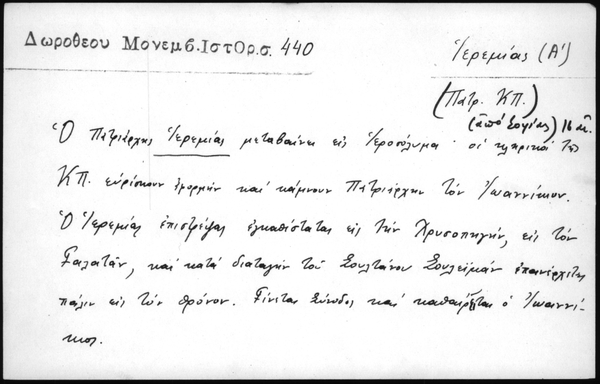 Δωροθεου Μονεμβ. Ιστ Ορ. σ. 440
Ἱερεμίας (Α')
(Πατρ. ΚΠ.)
(ἀπό Σοφίας) 16 αἰ.
Ὁ Πατριάρχης Ἱερεμίας μεταβαίνει εἰς Ἱεροσόλυμα· οἱ κληρικοί τῆς
ΚΠ. εὑρίσκουν ἀφορμήν καί κάμνουν Πατριάρχην τόν Ἰωαννίκιον.
Ὁ Ἱερεμίας ἐπιστρέψας ἐγκαθίσταται εἰς τήν Χρυσοπηγήν, εἰς τόν
Γαλατᾶν, καί κατά διαταγήν τοῦ Σουλτάνου Σουλεϊμάν ἐπανέρχεται
πάλιν εἰς τόν θρόνον. Γίνεται Σύνοδος καί καθαιρεῖται ὁ Ἰωαννί-
κιος.